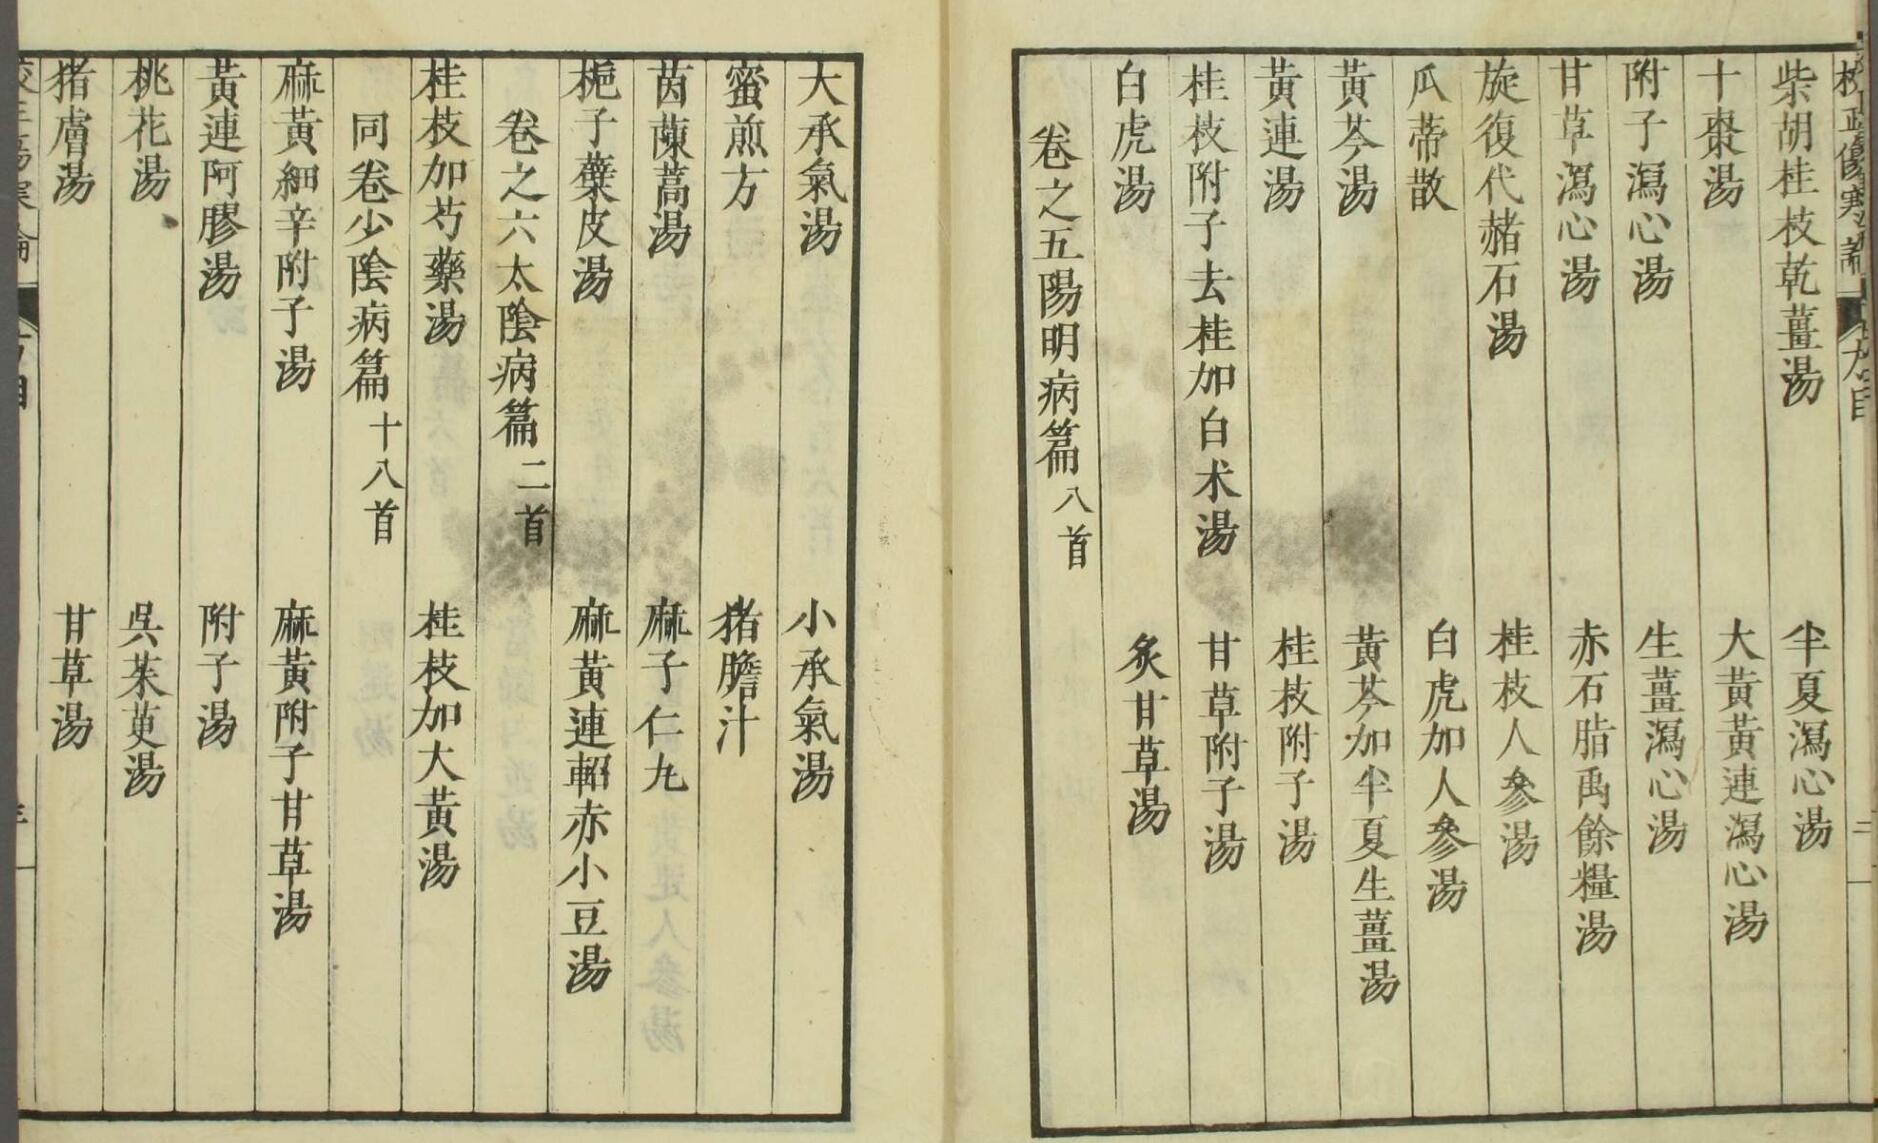 校正傷寒論 方目 二
柴胡桂枝乾薑湯 半夏瀉心湯
十棗湯 大黃黃連瀉心湯
附子瀉心湯 生薑瀉心湯
甘草瀉心湯 赤石脂禹餘糧湯
旋復代赭石湯 桂枝人參湯
瓜蒂散 白虎加人參湯
黃芩湯 黃芩加半夏生薑湯
黃連湯 桂枝附子湯
桂枝附子去桂加白朮湯 甘草附子湯
白虎湯 炙甘草湯
卷之五陽明病篇 八首
大承氣湯 小承氣湯
蜜煎方 猪膽汁
茵蔯蒿湯 麻子仁丸
梔子蘗皮湯 麻黃連軺赤小豆湯
卷之六太陰病篇 二首
桂枝加芍藥湯 桂枝加大黃湯
同卷少陰病篇 十八首
麻黃細辛附子湯 麻黃附子甘草湯
黃連阿膠湯 附子湯
桃花湯 吳茱萸湯
猪膚湯 甘草湯